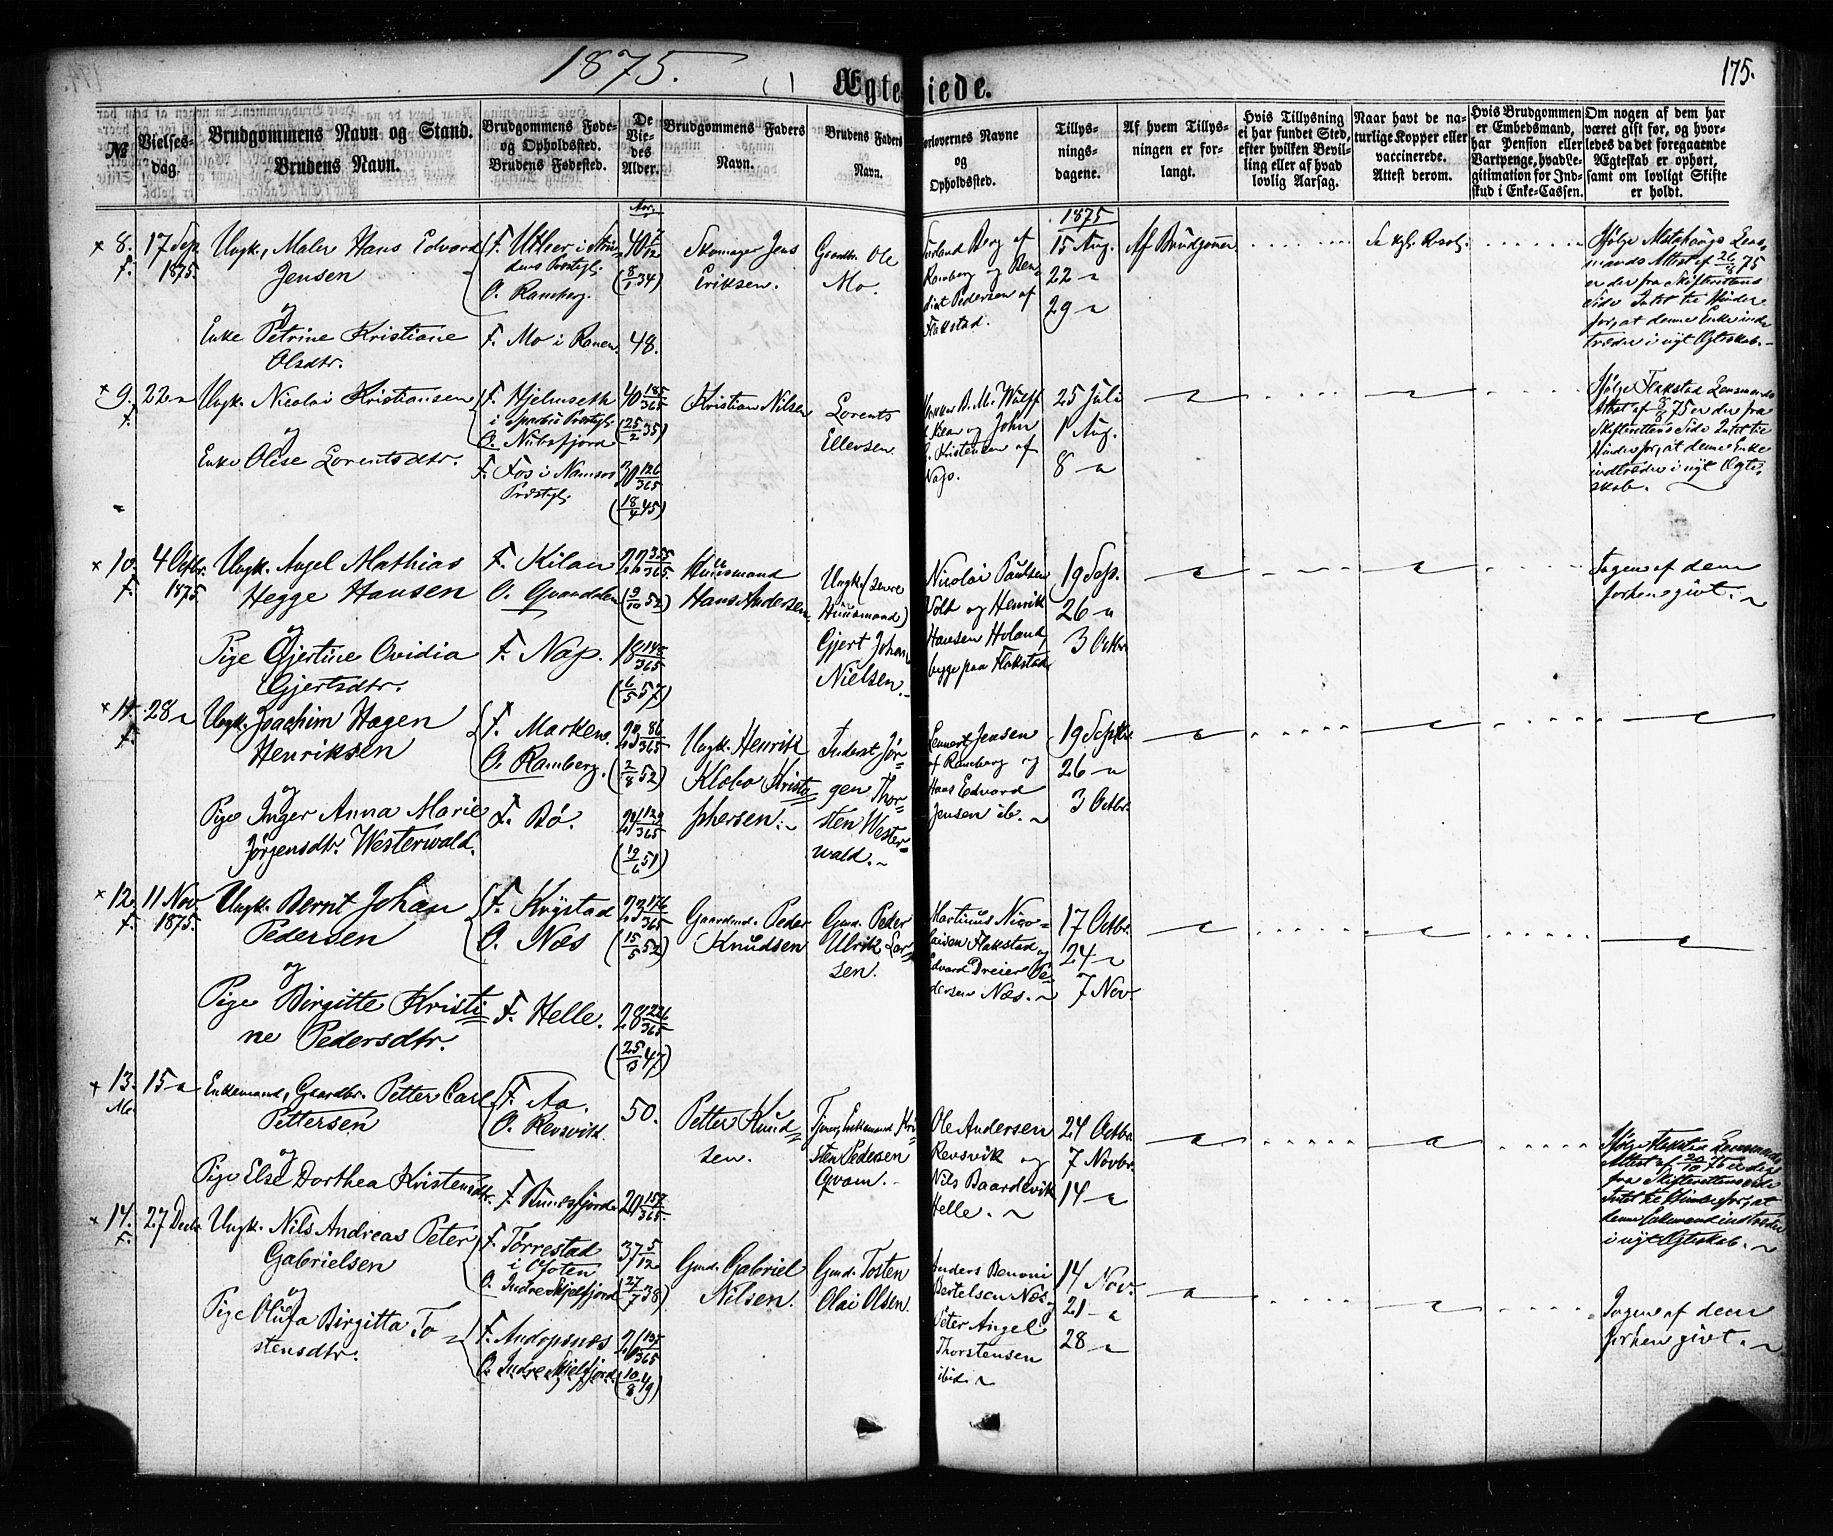 1875.
Ægteviede.
175.
№
Vielses-
dag.
Brudgommens Navn og Stand.
Brudens Navn.
Brudgommens Føde-
og Opholdssted.
Brudens Fødested.
De
Vie-
des
Alder.
Brudgommens Faders
Navn.
Brudens Faders
Navn.
Forlovernes Navne
og
Opholdssted.
Tillys-
nings-
dagene.
Af hvem Tillys-
ningen er for-
langt.
Hvis Tillysning
ei har fundet Sted,
efter hvilken Bevil-
ling eller af hvad
lovlig Aarsag.
Naar havt de na-
turlige Kopper eller
vaccinerede.
Attest derom.
Hvis Brudgommen
er Embedsmand,
har Pension eller
Vartpenge, hvad Le-
gitimation for Ind-
skud i Enke-Cassen.
Om nogen af dem har
været gift før, og hvor-
ledes da det foregaaende
Ægteskab er ophørt,
samt om lovligt Skifte
er holdt.
× 8.
F.
17 Sep.
1875.
Ungk., Maler Hans Edvard
Jensen
og
Enke Petrine Kristiane
Olsdtr.
O. Ramberg.
F. Mo i Ranen
Aar.
40 7/12
(8/1 34)
48.
Skomager Jens
Eriksen.
Gaardbr. Ole
Mo.
Berg af
Ramberg og Ben-
dikt Pedersen af
Flakstad.
1875
15 Aug.
22 "
29 "
Af Brudgommen
Se kgl. Resol.
Ifølge
Attest af 26/8 75
er der fra Skifterettens
Side Intet til Hinder
for, at denne Enke ind-
træder i nyt Ægteskab.
× 9.
F.
22 "
Ungk. Nicolai Kristiansen
og
Enke Olise Lorentsdtr.
F. Hjelmseth
i Sparbu Præstgj.
O. Nubsfjord
F. Fos i Namsos
Præstgj.
40 185/365
(25/2 35)
30 126/365
(18/4 45)
Kristian Nilsen
Lorents
Ellevsen
B. M. Wulff
og John
Kristensen af
Nap.
25 Juli
1 Aug.
8 "
Ifølge Flakstad Lensmands
Attest af 8/8 75 er der fra
Skifterettens Side Intet til
Hinder for, at denne Enke
indtræder i nyt Ægte-
skab.
× 10.
F.
4 Octbr.
1875
Ungk. Angel Mathias
Hegge Hansen
og
Pige Gjertine Ovidia
Gjertsdtr.
F. Kilan
O. Qvandalen
F. Nap.
22 355/365
(9/10 52)
18 148/365
(6/5 57)
Huusmand
Hans Andersen
Ungk. (senre
Huusmand)
Gjert Johan
Nielsen.
Nicolai Paulsen
Volt og Henrik
Hansen Holand,
begge paa Flakstad
19 Sep.
26 "
3 Octbr.
Ingen af dem
forhen givt.
× 11.
F.
28 "
Ungk. Joachim Hagen
Henriksen
og
Pige Inger Anna Marie
Jørgensdtr. Westerwald.
F. Marken.
O. Ramberg.
F. Bø.
23 86/365
(2/8 52)
(12/6 51)
Ungk. Henrik
Klebo Kristo-
phersen.
Inderst Jør-
gen Thor-
sten Wester-
wald.
Lennert Jensen
af Ramberg og
Hans Edvard
Jensen ib.
19 Septbr.
26 "
3 Octbr.
× 12.
F.
11 Nov.
1875.
Ungk. Bernt Johan
Pedersen
og
Pige Birgitte Kristi-
ne Pedersdtr.
F. Krystad
O. Næs
F. Helle.
23 176/365
(15/5 52)
28 226/365
Gaardmd. Peder
Knudsen
Gmd. Peder
Ulrik Lar-
sen.
Martinus Nico-
laisen Flakstad og
Edvard Dreier Pe-
dersen Næs.
17 Octbr.
24 "
7 Nov.
× 13.
15 "
Enkemand, Gaardbr. Petter Carl
Pettersen
og
Pige Else Dorthea Kristensdtr.
F. Aa.
O. Revsvik.
50.
Petter Knud-
sen.
Enkemand Kri-
sten Pedersen
Qvam.
Ole Andersen
Revsvik og
Nils Baardsvik
Helle.
24 Octbr.
7 Novbr.
14 "
Ifølge Flakstad Lensmands
Attest af 20/10 75 er der
fra Skifterettens Side
Intet til Hinder for, at
denne Enkemand indtræder
i nyt Ægteskab.
× 14.
F.
27 Decbr.
Ungk. Nils Andreas Peter
Gabrielsen
og
Pige Olufa Birgitta To-
stensdtr.
F. Tørrestad
i Ofoten
O. Indre Skjelfjord
F. Andopsnæs
O. Indre Skjelfjord
37 5/12
(27/7 38)
26 137/365
(10/8 49)
Gmd. Gabriel
Nilsen.
Gmd. Tosten
Olai Olsen.
Anders Benoni
Bertelsen Næs og
Peter Angel
Thorstensen
ibid.
14 Nov.
21 "
28 "
Ingen af dem
forhen givt.